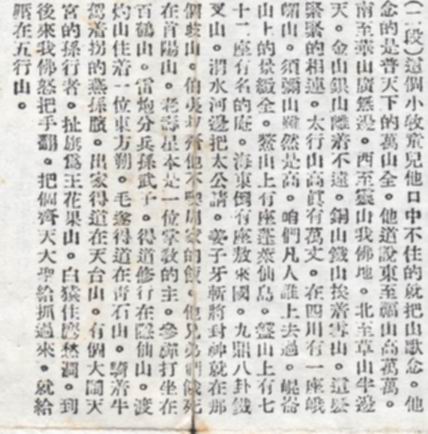 (二段)這個小牧童兒他口中不住的就把山獸念。他
念的是普天下的萬山全。他道說東至福山高萬萬。
南至華山廣無邊。西至靈山我佛地。北至草山半邊
天。金山銀山離着不遠。銅山鐵山挨着雲山。這
緊緊的相連。太行山高眞有萬丈。在四川有一座峨
嵋山。須彌山雖然是高。咱們凡人誰上去過。崐崙
山上的景緻全。鰲山上有座蓬萊仙島。盤山上有七
十二座有名的庵。海東倒有座敖來國。九鼎八卦鐵
叉山。渭水河邊把太公請。姜子牙斬將封神就在那
個岐山。伯夷叔齊他不喫周家的飯。他兄弟們餓死
在首陽山。老壽星本是一位掌教的主。參禪打坐在
百鶴山。雷炮分兵孫武子。得道修行在隱仙山。渡
灼山住着一位東方朔。毛遂得道在靑石山。騎着牛
駕着拐的燕孫臏。出家得道在天台山。有個大鬧天
宮的孫行者。扯旗爲王花果山。白猿住愁澗。到
後來我佛怒把手翻。把個齊天大聖給抓過來。就給
壓在五行山。